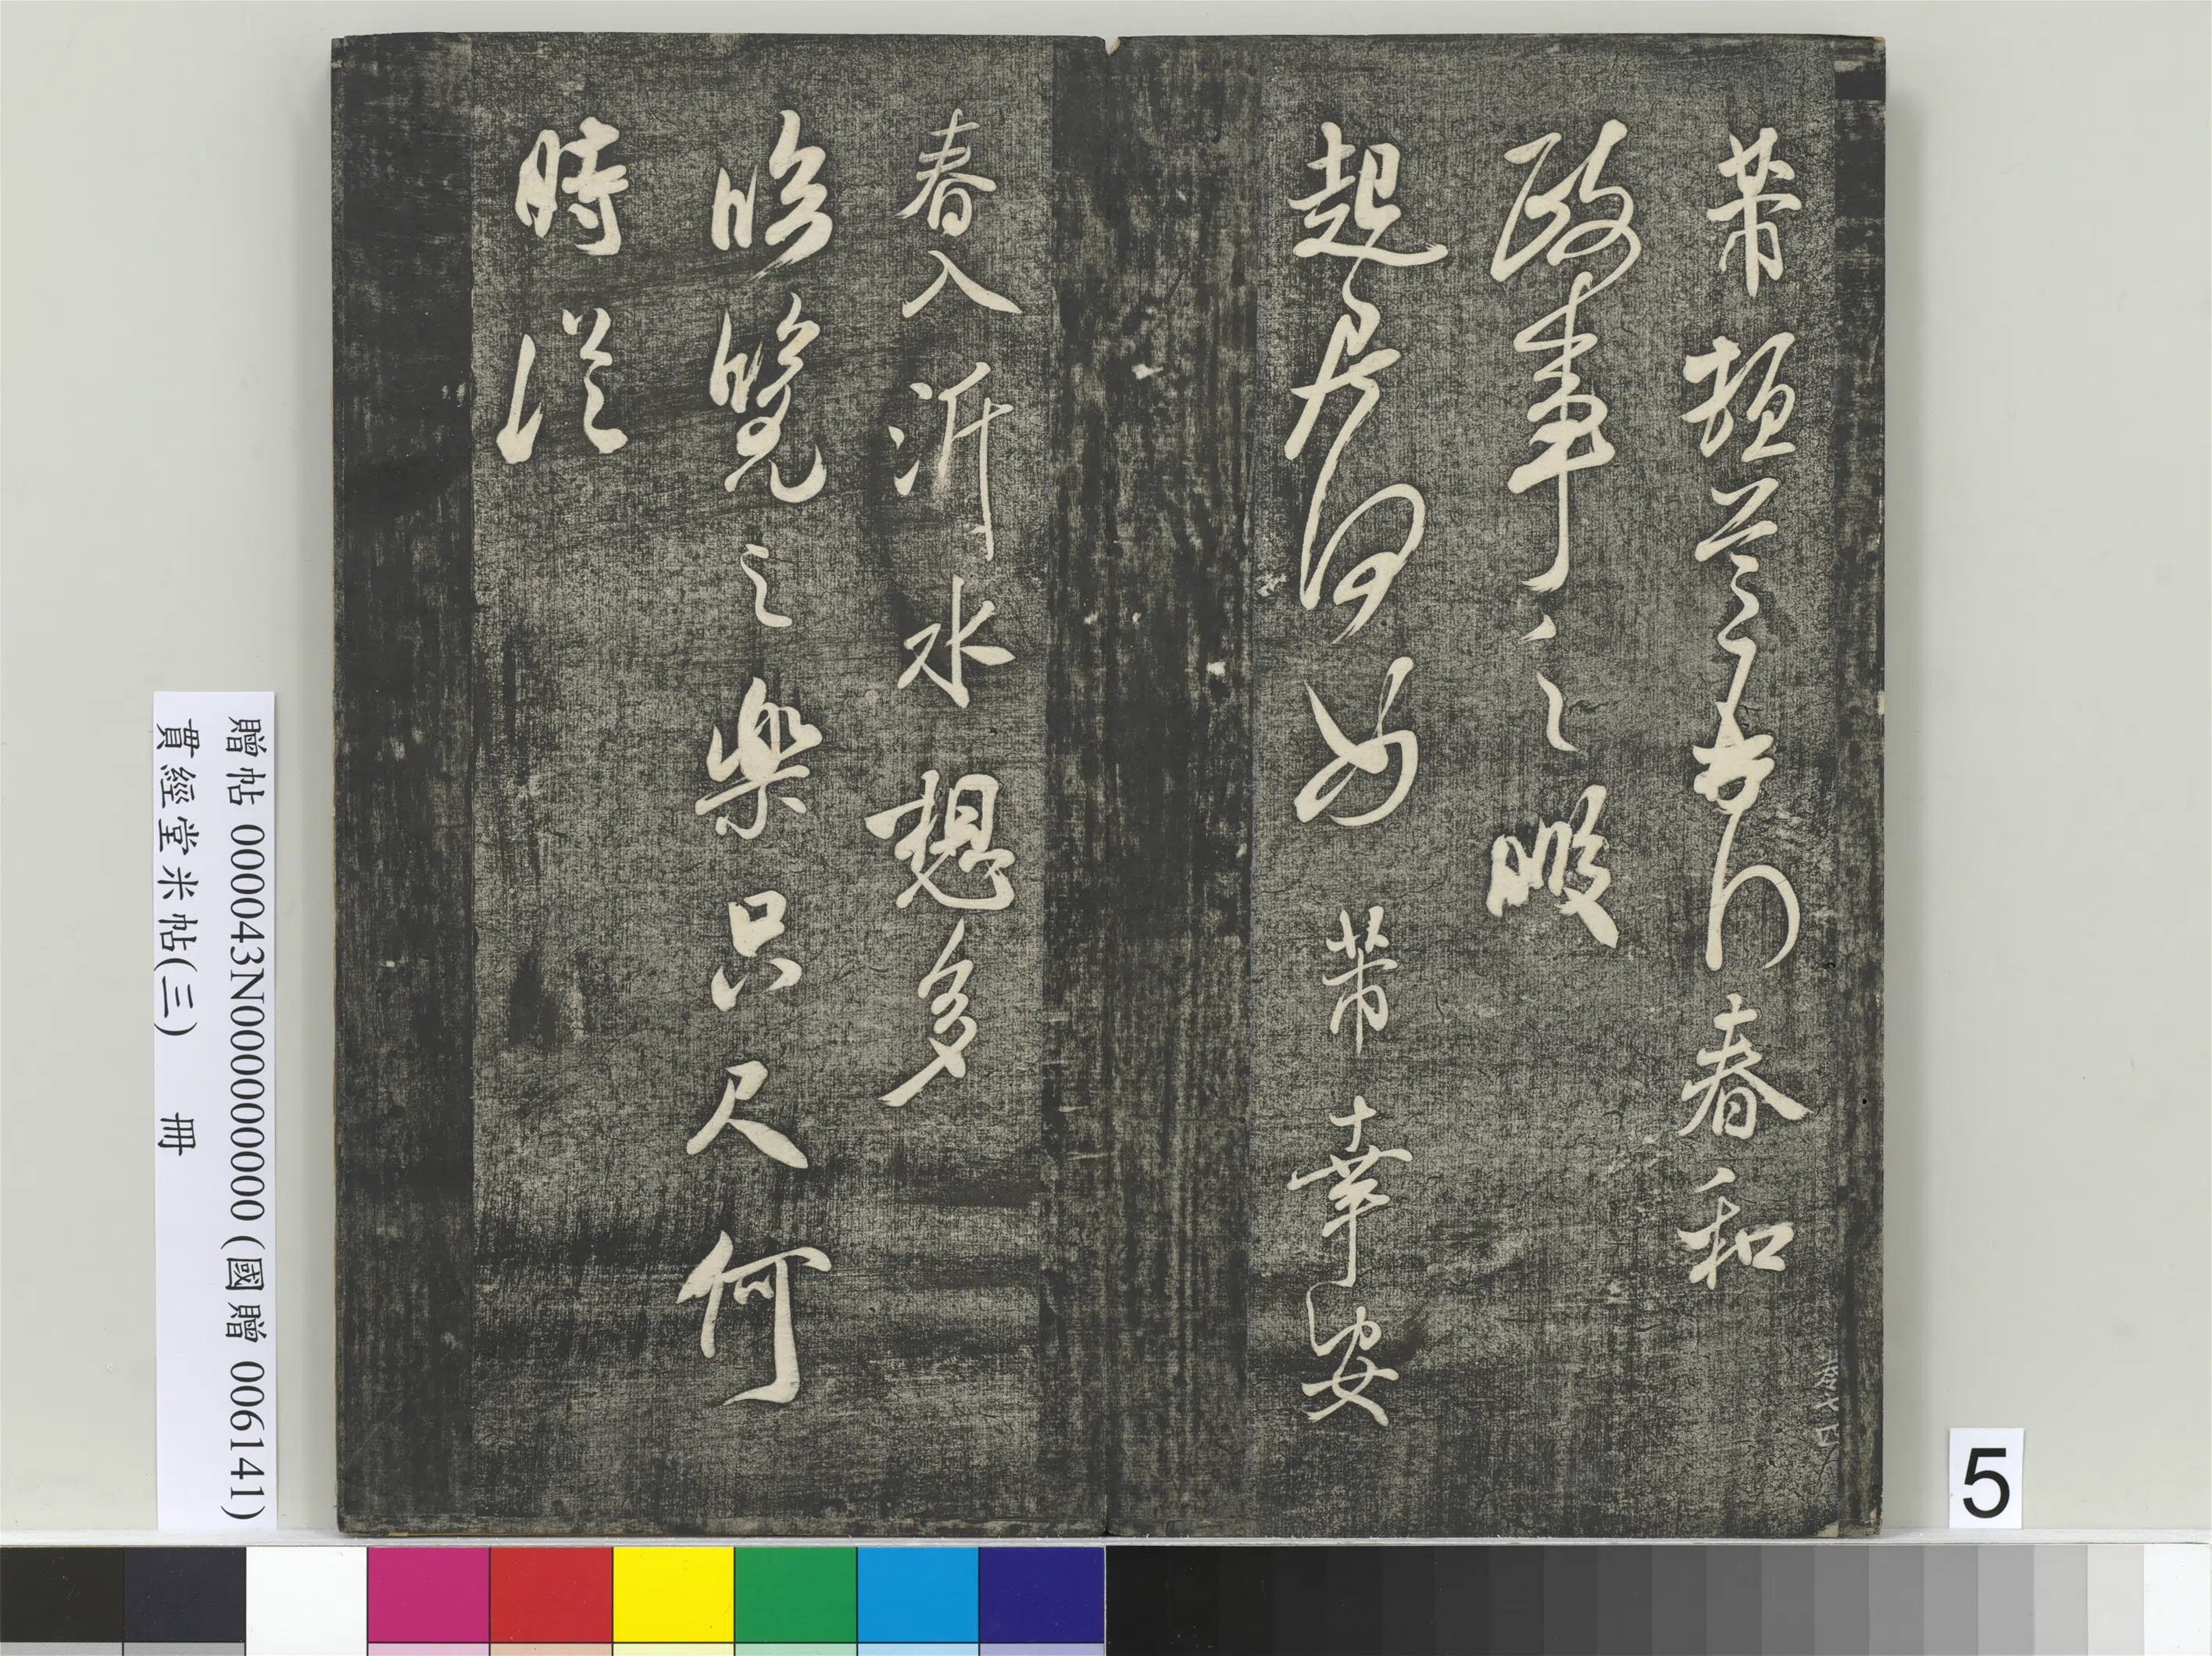 芾春和
政事之暇
起居何如芾幸安
春入沂水想多
臨覽之樂只尺何
時從
贈帖 000043N000000000 (國贈 006141)
貫經堂米帖(三) 冊
5